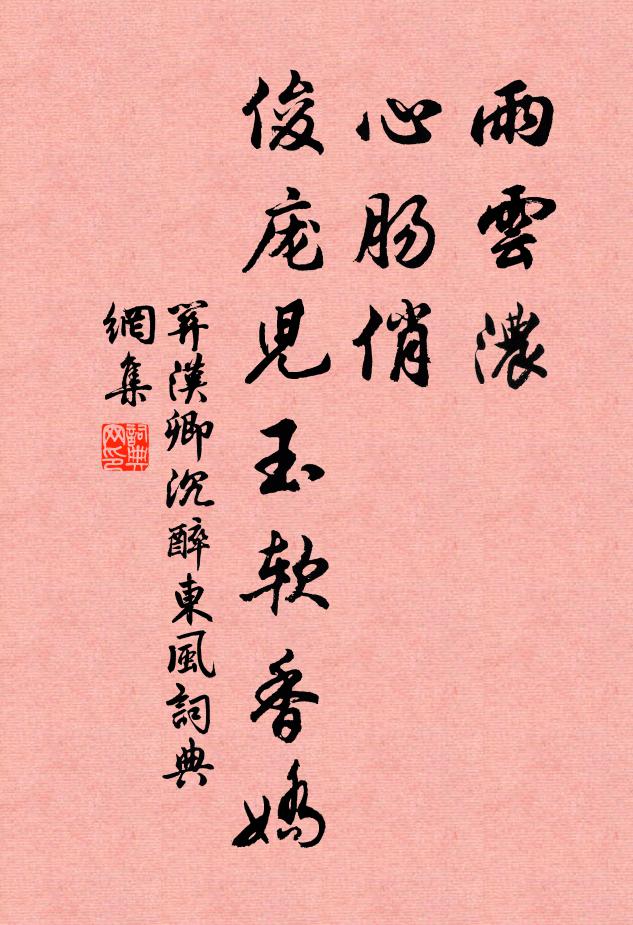 雨雲濃
心肠俏
俊庞兒玉软香嬌
關漢卿沉醉東風詞典
網集
詞典网印